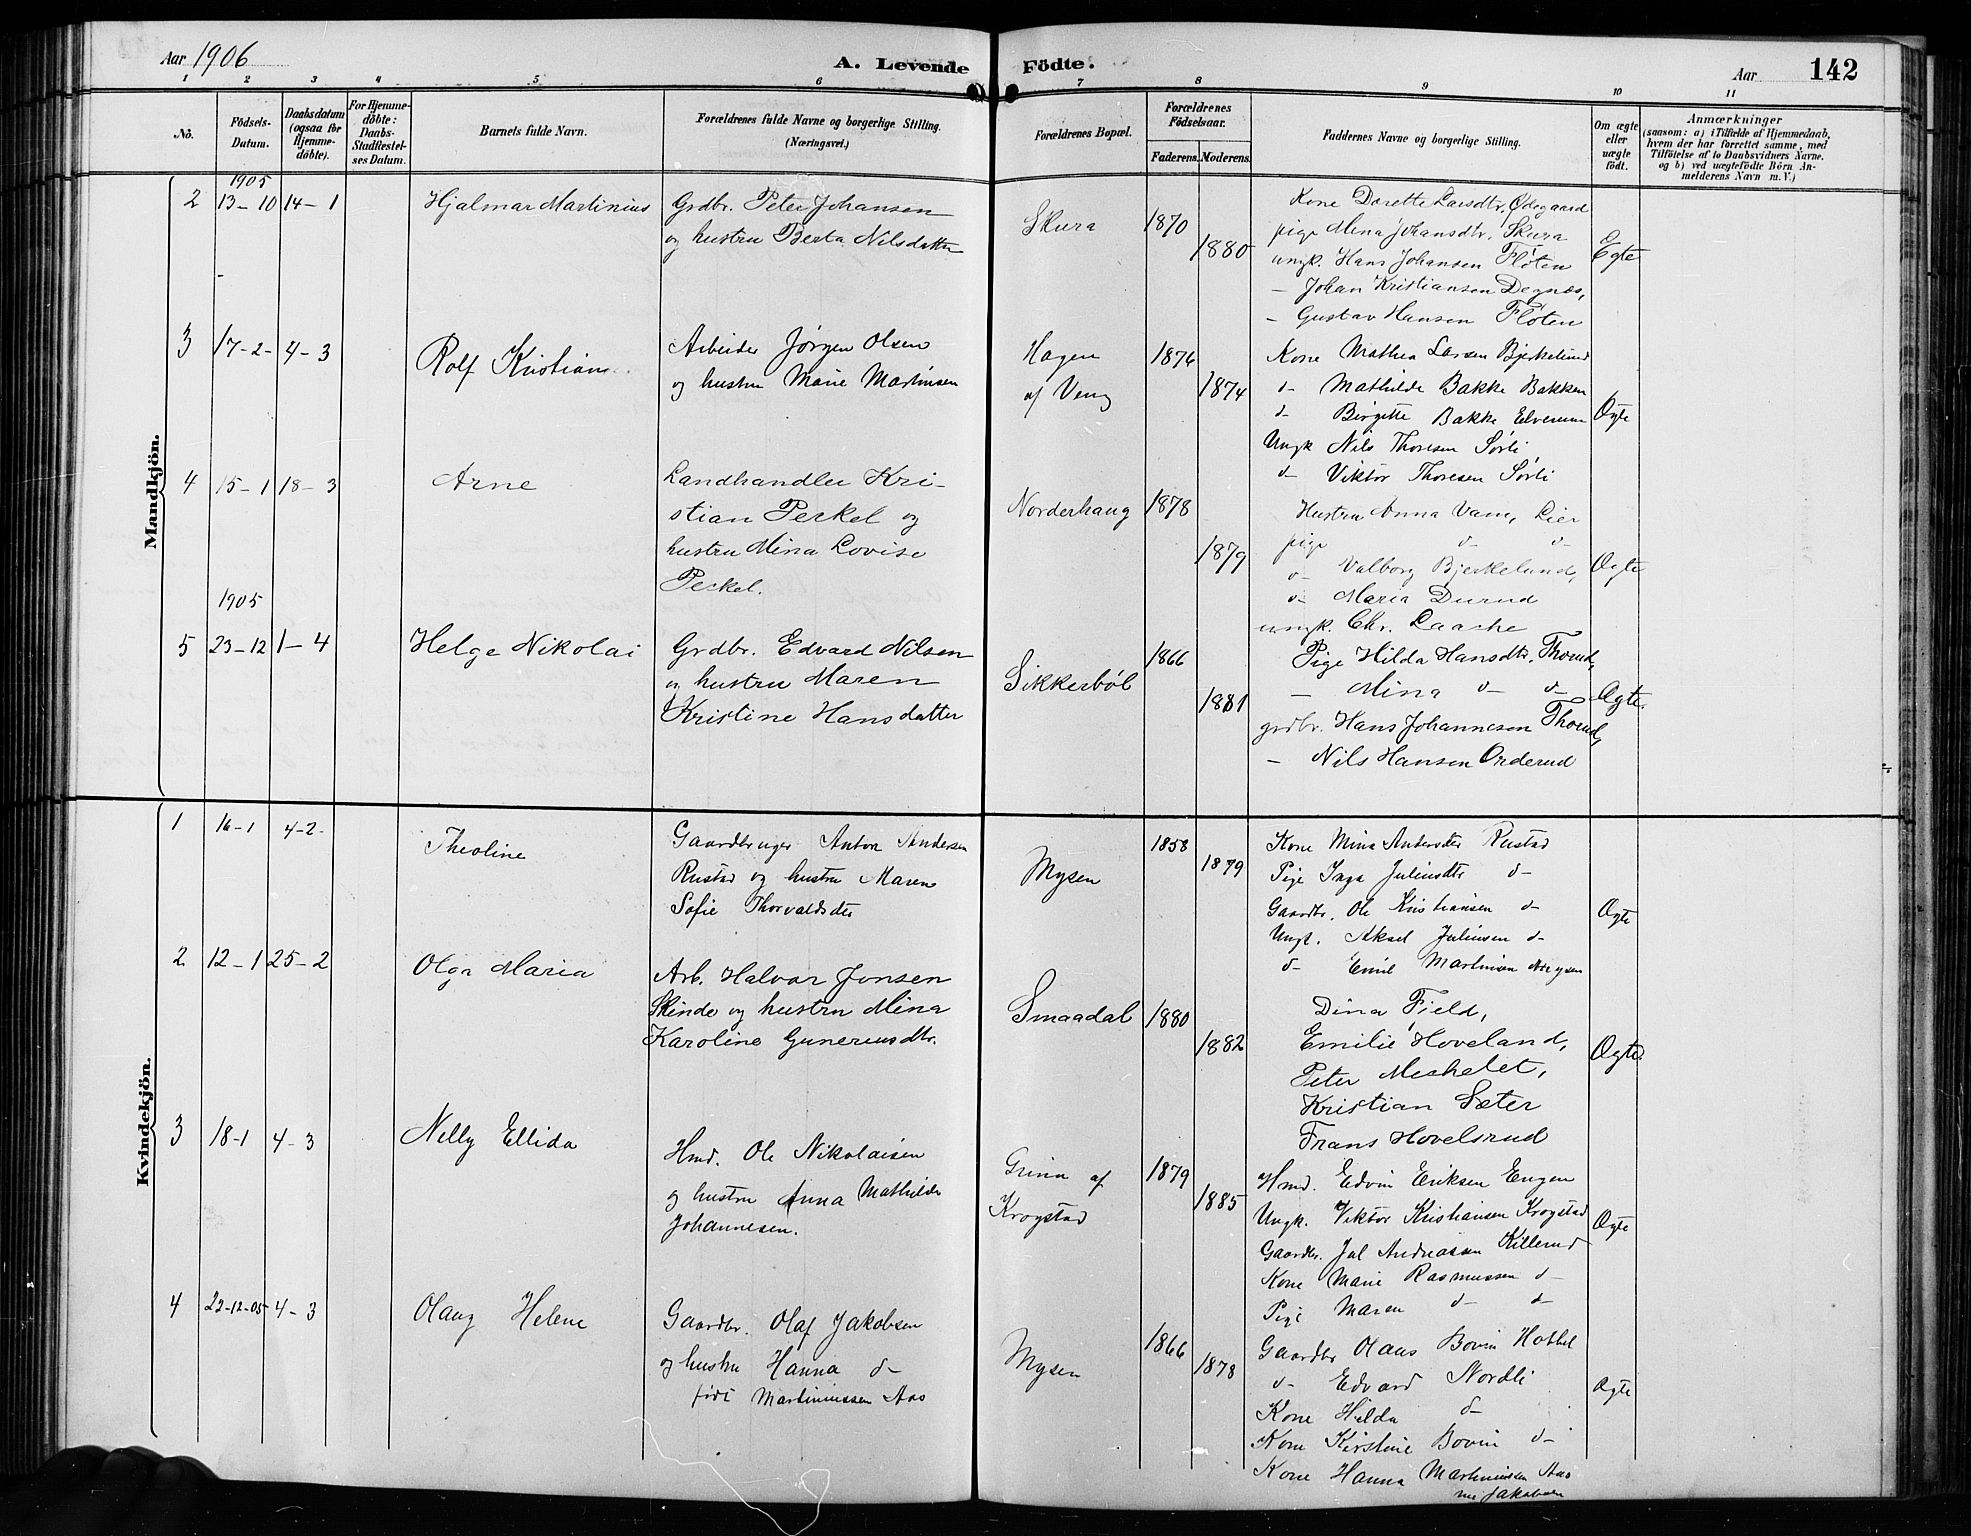 Aar 1906
A. Levende Födte.
Aar 142
1 2 3 4 5 6 7 8 9 10 11
No.
Födsels-
Datum.
Daabsdatum
(ogsaa for
Hjemme-
döbte).
For Hjemme-
döbte:
Daabs-
Stadfestel-
ses Datum.
Barnets fulde Navn.
Forældrenes fulde Navne og borgerlige Stilling.
(Næringsvei.)
Forældrenes Bopæl.
Forældrenes
Födselsaar.
Faderens. Moderens.
Faddernes Navne og borgerlige Stilling.
Om ægte
eller
uægte
födt.
Anmærkninger
(saasom: a) i Tilfælde af Hjemmedaab,
hvem der har forrettet samme, med
Tilföielse af to Daabsvidners Navne.
og b) ved uægtefödte Börn An-
melderens Navn m. V.)
Mandkjön.
1905
2 13-10 14-1 Hjalmar Martinius
Grdbr. Peter Johansen
og hustru Berta Nilsdatter
Skura 1870
1880
Kone Dorette Larsdtr. Ødegaard
pige Mina Johansdtr. Skura
ungk. Hans Johansen Fløten
- Johan Kristiansen Degnæs,
- Gustav Hansen Fløten
Egte
3 17-2- 4-3 Rolf Kristian
Arbeider Jørgen Olsen
og hustru Marie Martinsen
Hagen
af Veng
1876
1874
Kone Mathea Larsen Bjerkelund
d- Mathilde Bakke Bakken
d- Birgitte Bakke Elverum
Ungk Nils Thoresen Sørli
d- Viktor Thoresen Sørli
Ægte
4 15-1 18-3 Arne
Landhandler Kri-
stian Perkel og
hustru Mina Lovise
Perkel.
Norderhaug 1878
1879
Hustru Anna Vam, Lier
pige d- d-
d- Valborg Bjerkelund,
d- Maria Durud
ungk. Chr. Laache
Ægte
1905
5 23-12 1-4 Helge Nikolai
Grdbr. Edvard Nilsen
og hustru Maren
Kristine Hansdatter
Sikkerbøl
1866
1881
Pige Hilda Hansdtr. Thorud,
- Mina d- d-
grdbr. Hans Johannesen Thorud,
- Nils Hansen Orderud
Ægte
Kvindekjön.
1 16-1 4-2- Theoline
Gaardbruger Anton Andersen
Rustad og hustru Maren
Sofie Thorvaldsdtr
Mysen
1858
1879
Kone Mina Andersdtr Rustad
Pige Inga Juliusdtr d-
Gaardbr. Ole Kristiansen d-
Ungk. Aksel Juliusen d-
d- Emil Martinsen
Ægte
2 12-1 25-2 Olga Maria
Arb. Halvor Jonsen
Skinde og hustru Mina
Karoline Guneriusdtr.
Smaadal 1880
1882
Dina Fjeld,
Emilie Hoveland,
Peter Meshelet,
Kristian Sæter
Frans Hovelsrud
Ægte
3 18-1 4-3 Nelly Ellida
Hmd. Ole Nikolaisen
og hustru Anna Mathilde
Johannesen.
Grina af
Krogstad
1879
1885
Hmd. Edvin Eriksen Engen
Ungk. Viktor Kristiansen Krogstad
Gaardbr. Jul Andreassen Killerud
Kone Marie Rasmussen d-
Pige Maren d- d-
Ægte
4 22-12-05 4-3 Olaug Helene
Gaardbr. Olaf Jakobsen
og hustru Hanna d-
født Martiniussen Aas
Mysen
1866
1878
Gaardbr Olaus Bovin
d- Edvard Nordli
Kone Hilda d-
Kone Kirstine Bovin d-
Kone Hanna Martiniussen Aas
Jakobsen
Ægte